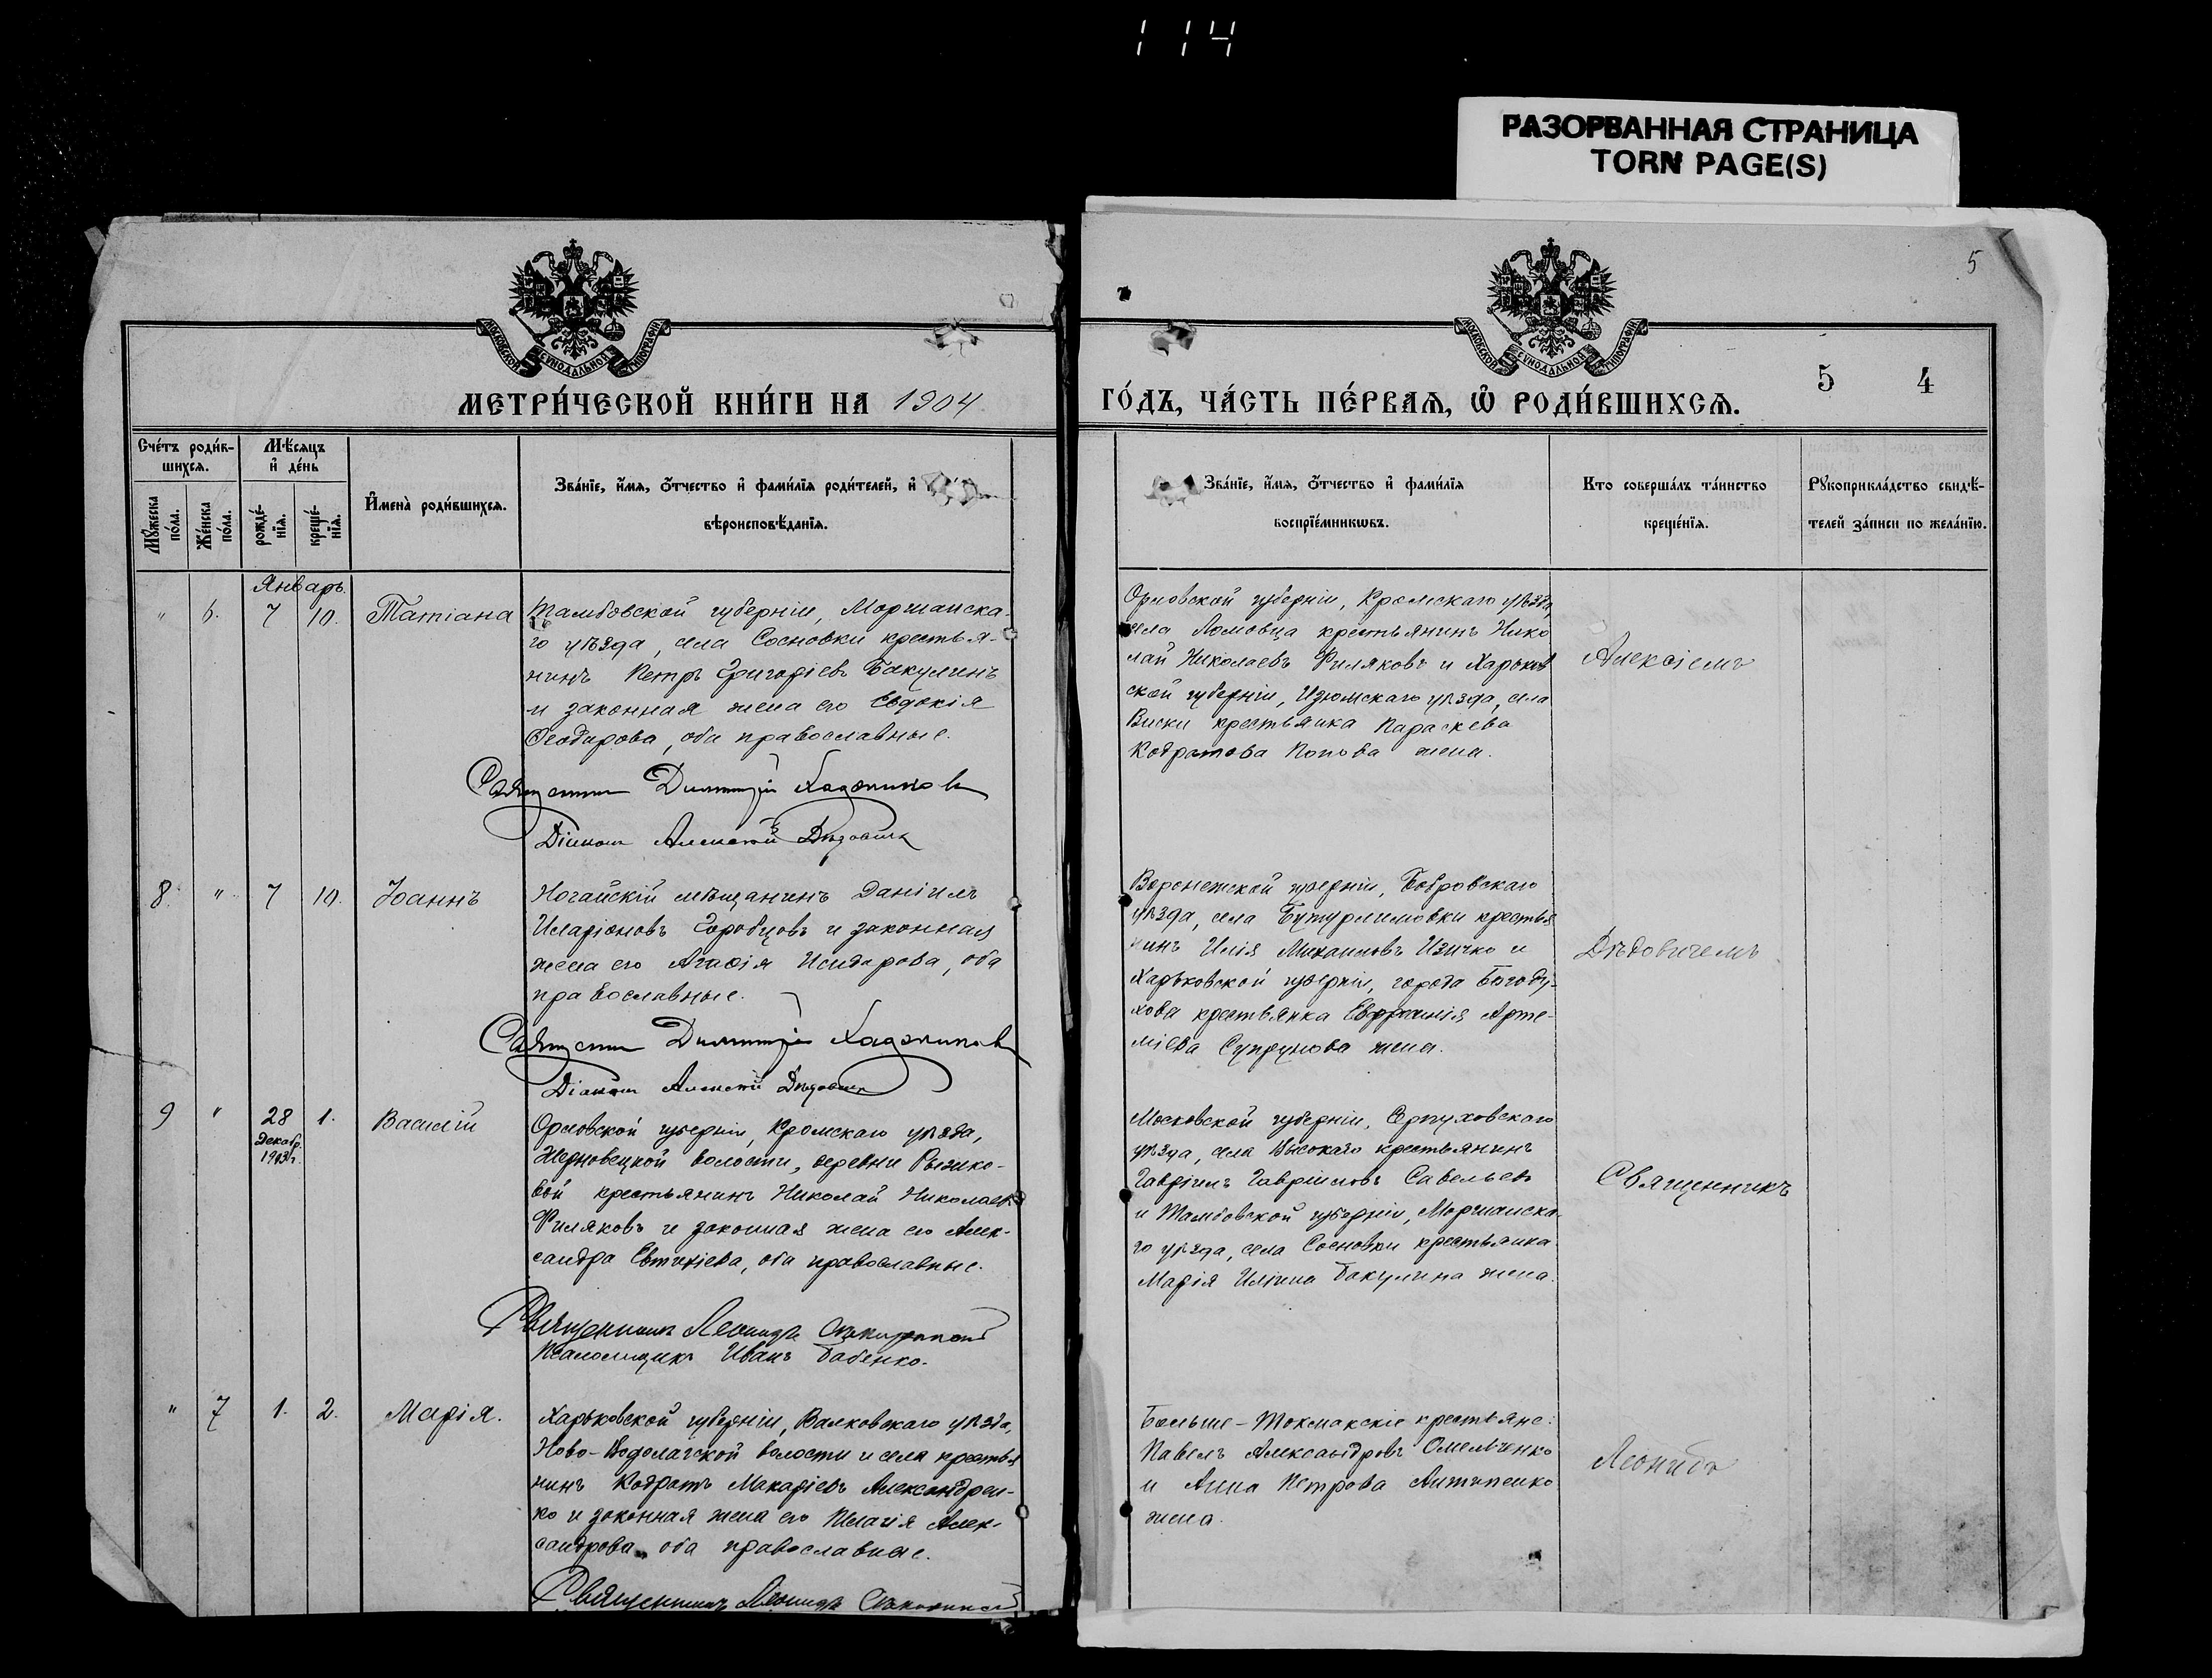 114
РАЗОРВАННАЯ СТРАНИЦА
TORN PAGE(S)
5
МОСКОВСКОЙ СѴНОДАЛЬНОЙ ТИПОГРАФІИ
МОСКОВСКОЙ СѴНОДАЛЬНОЙ ТИПОГРАФІИ
МЕТРИ́ЧЕСКОЙ КНИ́ГИ НА 1904
ГО́ДЪ, ЧА́СТЬ ПЕ́РВАѦ, Ѽ РОДИ́ВШИХСѦ.
5 4
Сче́тъ роди́в-
шихсѧ.
Мꙋ́жеска
по́ла.
Же́нска
по́ла.
Мѣ́сѧцъ
и҆ де́нь
рожде́-
нїѧ.
креще́-
нїѧ.
И҆мена̀ роди́вшихсѧ.
Зва́нїе, и҆́мѧ, ѻ҆́тчество и҆ фами́лїѧ роди́телей, и҆
вѣроисповѣ́данїѧ.
Зва́нїе, и҆́мѧ, ѻ҆́тчество и҆ фами́лїѧ
воспрїе́мникѡвъ.
Кто соверша́лъ та́инство
креще́нїѧ.
Рꙋкоприкла́дство свидѣ́-
телей за́писи по жела́нїю.
Январь.
" 6. 7 10. Татіана
Тамбовской губерніи, Моршанска-
го уѣзда, села Сосновки крестья-
нинъ Петръ Григоріевъ Бакулинъ
и законная жена его Евдокія
Ѳеодорова, оба православные.
Священникъ Димитрій
Діаконъ Алексій Дѣдовичъ
Орловской губерніи, Кромскаго уѣзда,
села Ломовца крестьянинъ Нико
лай Николаевъ Филяковъ и Харьков
ской губерніи, Изюмскаго уѣзда, села
Виски крестьянка Параскева
Кодратова Попова жена.
Алексіемъ
8. " 7 10. Іоаннъ
Ногайскій мѣщанинъ Даніилъ
Иларіоновъ Горобцовъ и законная
жена его Агафія Исидорова, оба
православные.
Священникъ Димитрій
Діаконъ Алексій Дѣдовичъ
Воронежской губерніи, Бобровскаго
уѣзда, села Бутурлиновки крестья
нинъ Илія Михаиловъ Изичко и
Харьковской губерніи, города Богоду-
хова крестьянка Евфиміѧ Арте-
міева Супрунова жена.
Дѣдовичемъ
9 " 28 1. Василій
Декабр.
1903 г.
Орловской губерніи, Кромскаго уѣзда,
Жерновецкой волости, деревни Рыжко-
вой крестьянинъ Николай Николаевъ
Филяковъ и законная жена его Алек-
сандра Евтихіева, оба православные.
Священникъ Леонидъ
Псаломщикъ Иванъ Бабенко.
Московской губерніи, Серпуховскаго
уѣзда, села Высокаго крестьянинъ
Гавріилъ Гавріиловъ Савельевъ
и Тамбовской губерніи, Моршанска-
го уѣзда, села Сосновки крестьянка
Марія Иліина Бакулина жена.
Священникъ
" 7 1. 2. Марія.
Харьковской губерніи, Валковскаго уѣзда,
Ново-Водолагской волости и села крестья
нинъ Кодратъ Макаріевъ Александрен-
ко и законная жена его Пелагія Алек-
сандрова оба православные.
Священникъ Леонидъ
Больше-Токмакскіе крестьяне:
Павелъ Александровъ Омельченко
и Анна Петрова Антипенко
жена.
Леонидъ